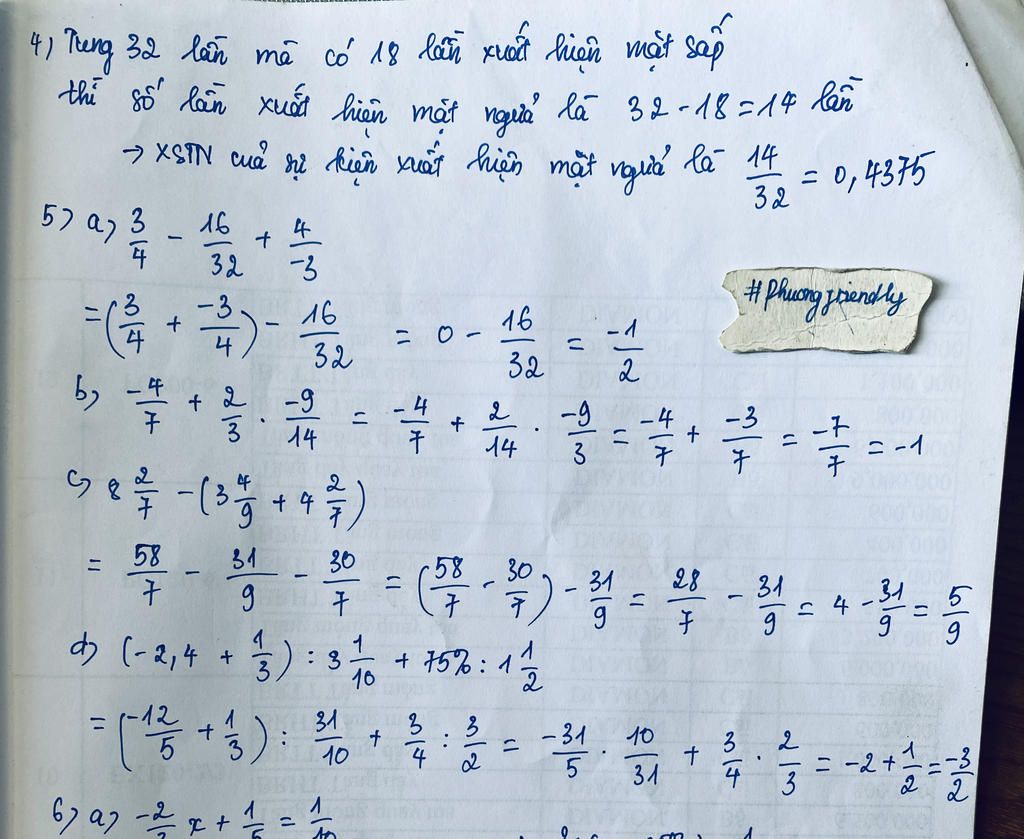 4) Tung 32 lần mà có 18 lần xuất hiện mặt sấp
thì số lần xuất hiện mặt ngửa là 32 - 18 = 14 lần
→ XSTN của sự kiện xuất hiện mặt ngửa là 14/32 = 0,4375
5) a) 3/4 - 16/32 + 4/-3
#phuongfriendly
= (3/4 + -3/4) - 16/32 = 0 - 16/32 = -1/2
b) -4/7 + 2/3 . -9/14 = -4/7 + 2/14 . -9/3 = -4/7 + -3/7 = -7/7 = -1
c) 8 2/7 - (3 4/9 + 4 2/7)
= 58/7 - 31/9 - 30/7 = (58/7 - 30/7) - 31/9 = 28/7 - 31/9 = 4 - 31/9 = 5/9
d) (-2,4 + 1/3) : 3 1/10 + 75% : 1 1/2
= (-12/5 + 1/3) : 31/10 + 3/4 : 3/2 = -31/5 . 10/31 + 3/4 . 2/3 = -2 + 1/2 = -3/2
6) a) -2/3 x + 1/5 = 1/10